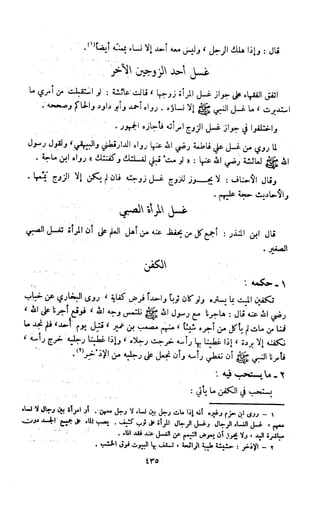 قال : وإذا هلك الرجل ، وليس معه أحد إلا نساء يممنه أيضاً (١).
غسل أحد الزوجين الآخر
اتفق الفقهاء على جواز غسل المرأة زوجها ، قالت عائشة : لو استقبلت من أمري ما
استدبرت ، ما غسل النبي ﷺ إلا نساؤه . رواه أحمد وأبو داود والحاكم وصححه .
واختلفوا في جواز غسل الزوج امرأته فأجازه الجمهور .
لما روي من غسل علي فاطمة رضي الله عنها رواه الدارقطني والبيهقي ، ولقول رسول
الله ﷺ لعائشة رضي الله عنها : « لو مت قبلي لغسلتك وكفنتك » رواه ابن ماجة .
وقال الأحناف : لا يجوز للزوج غسل زوجته فان لم يكن إلا الزوج يممها .
والأحاديث حجة عليهم .
غسل المرأة الصبي
قال ابن المنذر : أجمع كل من يحفظ عنه من أهل العلم على أن المرأة تغسل الصبي
الصغير .
الكفن
١ - حكمه :
تكفين الميت بما يستره ولو كان ثوباً واحداً فرض كفاية ، روى البخاري عن خباب
رضي الله عنه قال : هاجرنا مع رسول الله ﷺ نلتمس وجه الله ، فوقع أجرنا على الله ،
فمنا من مات لم يأكل من أجره شيئاً ، منهم مصعب بن عمير ، قتل يوم أحد ، فلم نجد ما
نكفنه إلا بردة ، إذا غطينا بها رأسه خرجت رجلاه ، وإذا غطينا رجليه خرج رأسه ،
فأمرنا النبي ﷺ أن نغطي رأسه وأن نجعل على رجليه من الإذخر (٢).
٢ - ما يستحب فيه :
يستحب في الكفن ما يأتي :
١ - روى ابن حزم وغيره أنه إذا مات رجل بين نساء لا رجل معهن . أو امرأة بين رجال لا نساء
معهم ، غسل النساء الرجال وغسل الرجال المرأة على ثوب كثيف . يصب الماء على جميع الجسد دون
مباشرة اليد ، ولا يجوز أن يعوض التيمم عن الغسل عند فقد الماء .
٢ - الإذخر : حشيشة طيبة الرائحة ، تسقف بها البيوت فوق الخشب .
٤٣٥